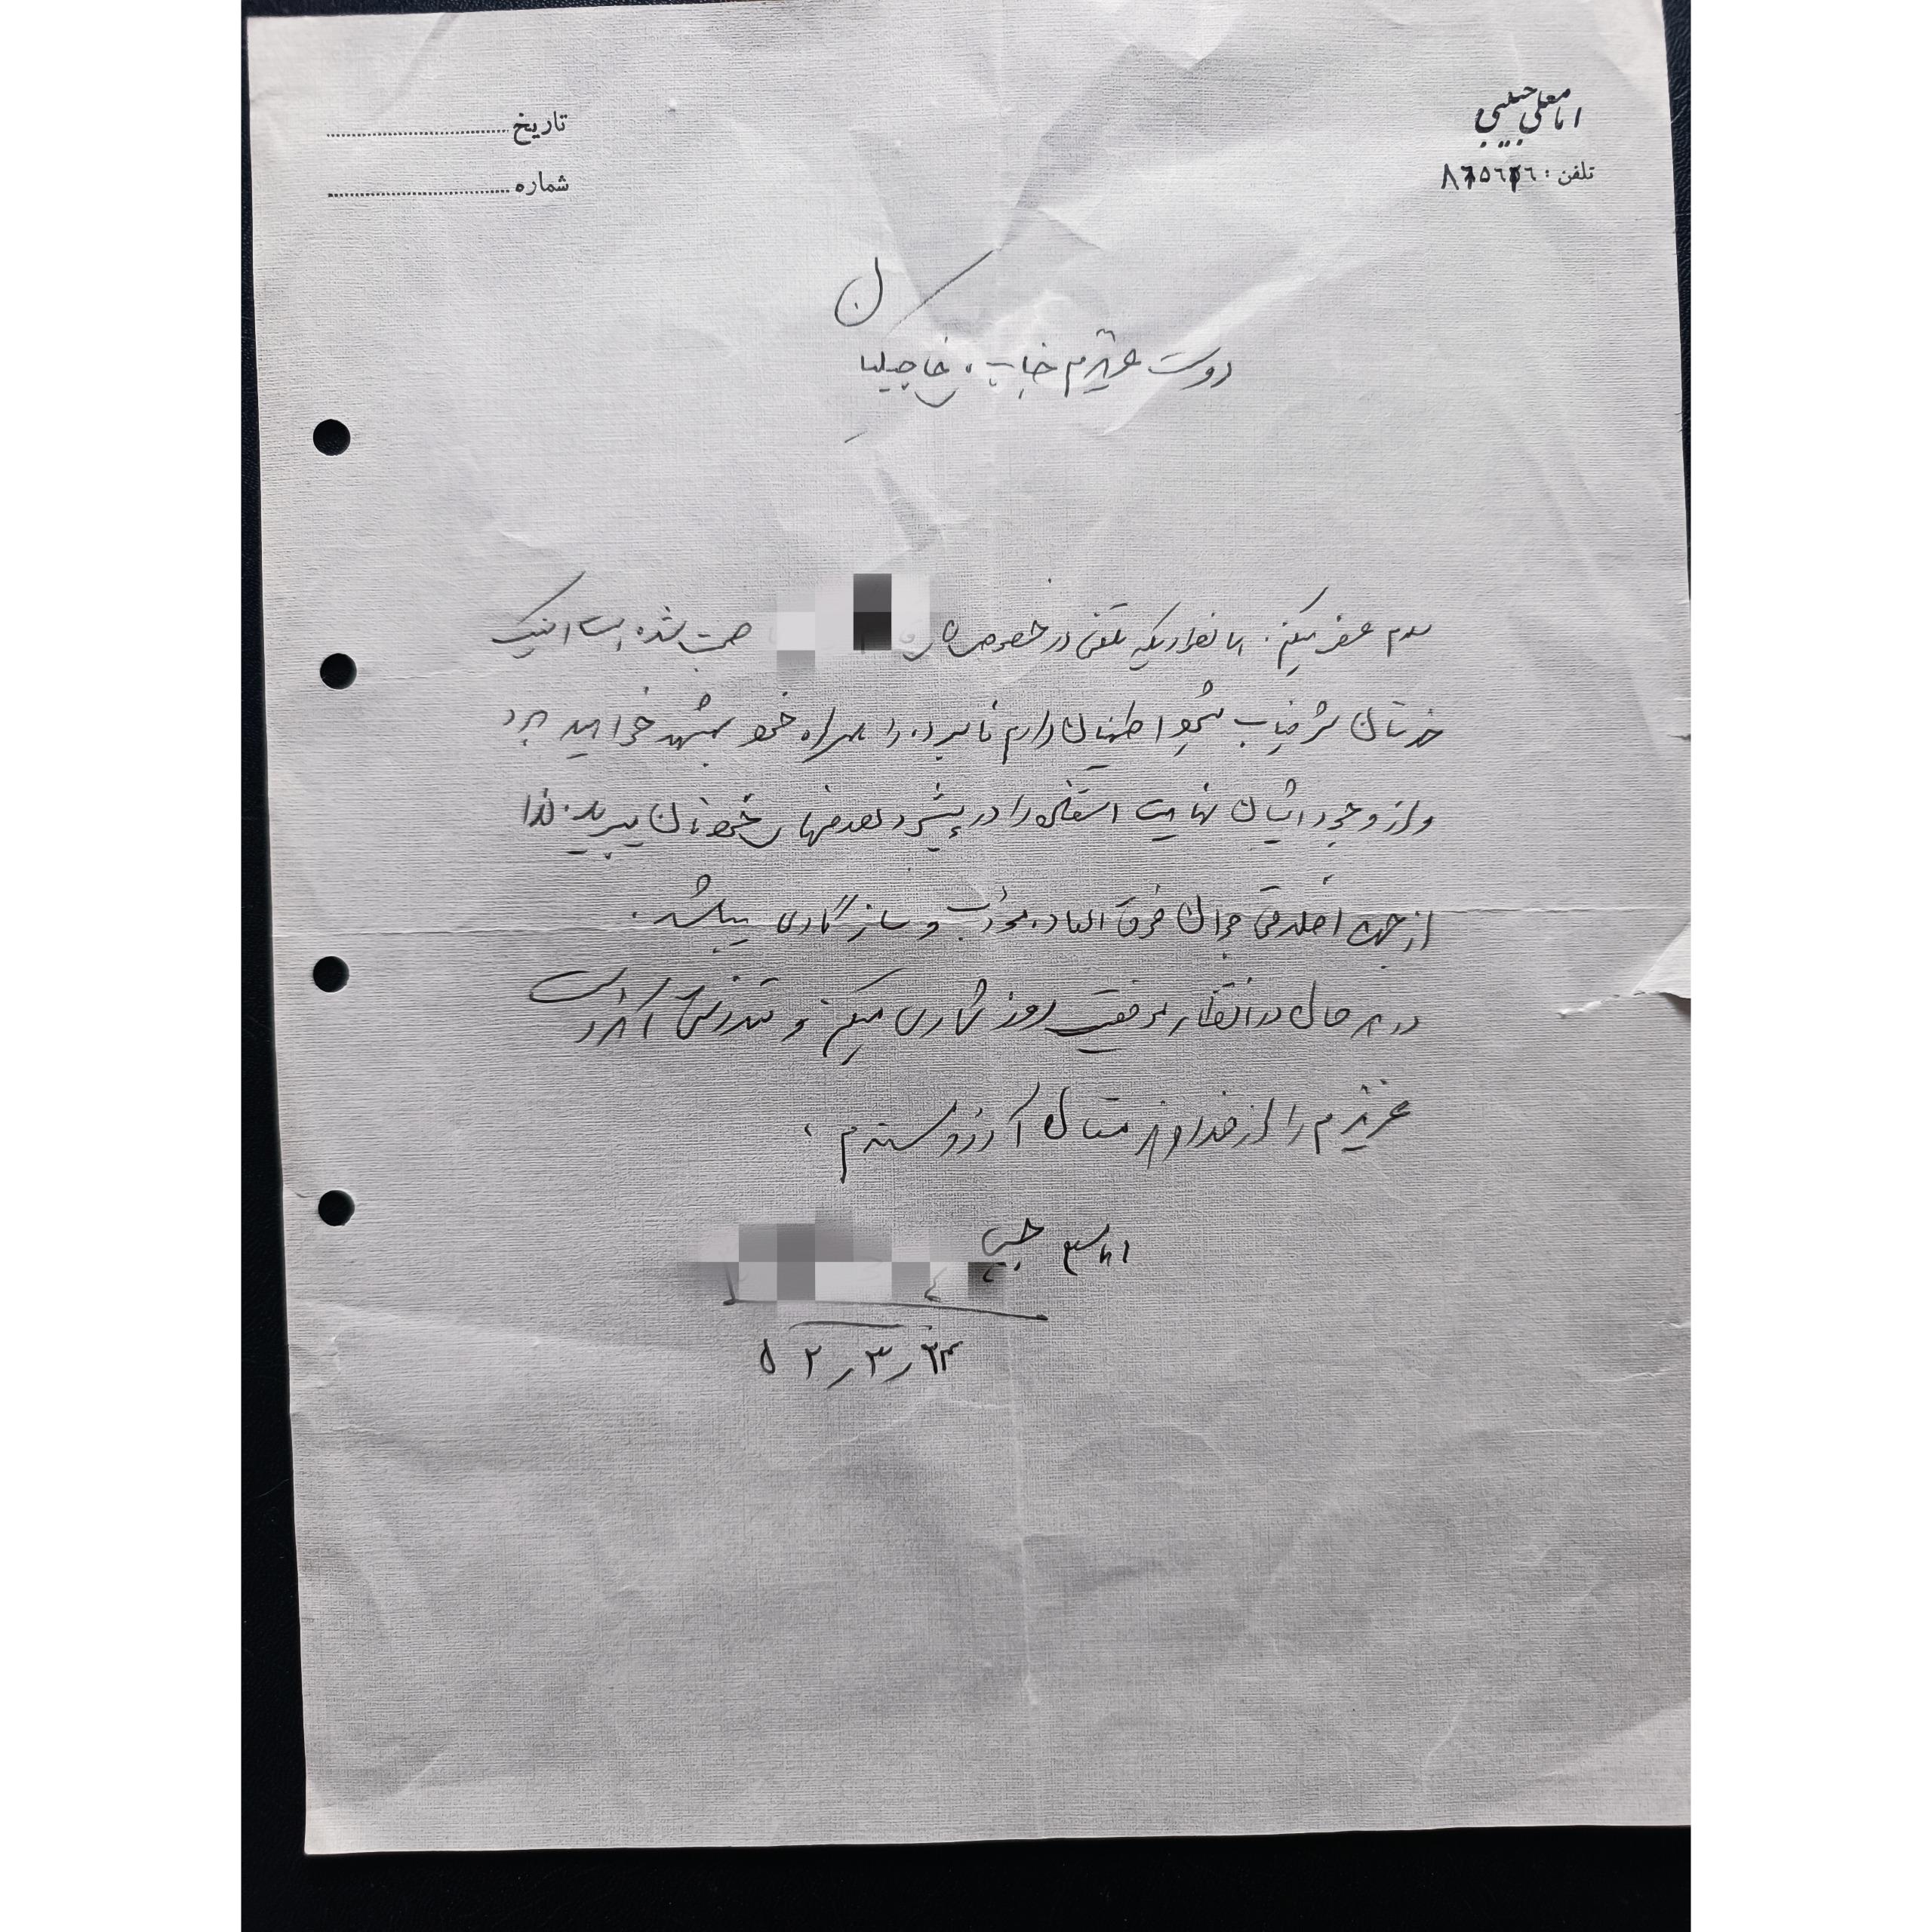 امامعلی حبیبی
تلفن :
تاریخ
شماره
دوست عزیزم جناب
سلام عرض میکنم. همانطوریکه تلفنی در خصوص آقای صحبت شده است اینک
خدمتتان شرفیاب میشود اطمینان دارم نامبرده را همراه خود بمشهد خواهید برد
و از وجود ایشان نهایت استفاده را در پیشبرد هدفهای خودتان میبرید. لذا
از جهت اخلاقی جوان فوق العاده مودب و سازگاری میباشد.
در هر حال در انتظار موفقیت روز شماری میکنم و تندرستی آن دوست
عزیزم را از خداوند متعال آرزومندم.
امامعلی حبیبی
۲۳ر۳ر۵۲